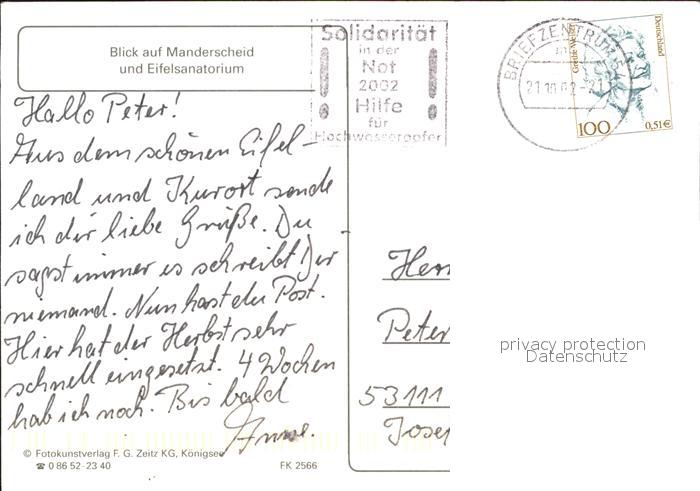 Blick auf Manderscheid
und Eifelsanatorium
Solidarität
in der
Not
2002
Hilfe
für
Hochwasseropfer
BRIEFZENTRUM 54
21.10.02-21
Deutschland
100
0,51€
Hallo Peter!
Aus dem schönen Eifel-
land und Kurort sende
ich dir liebe Grüße. Du
sagst immer es schreibt Dir
niemand. Nun hast du Post.
Hier hat der Herbst sehr
schnell eingesetzt. 4 Wochen
hab ich noch. Bis bald
Anne.
Herr
Peter
53111
Josef
privacy protection
Datenschutz
© Fotokunstverlag F. G. Zeitz KG, Königsee
☎ 0 86 52-23 40
FK 2566